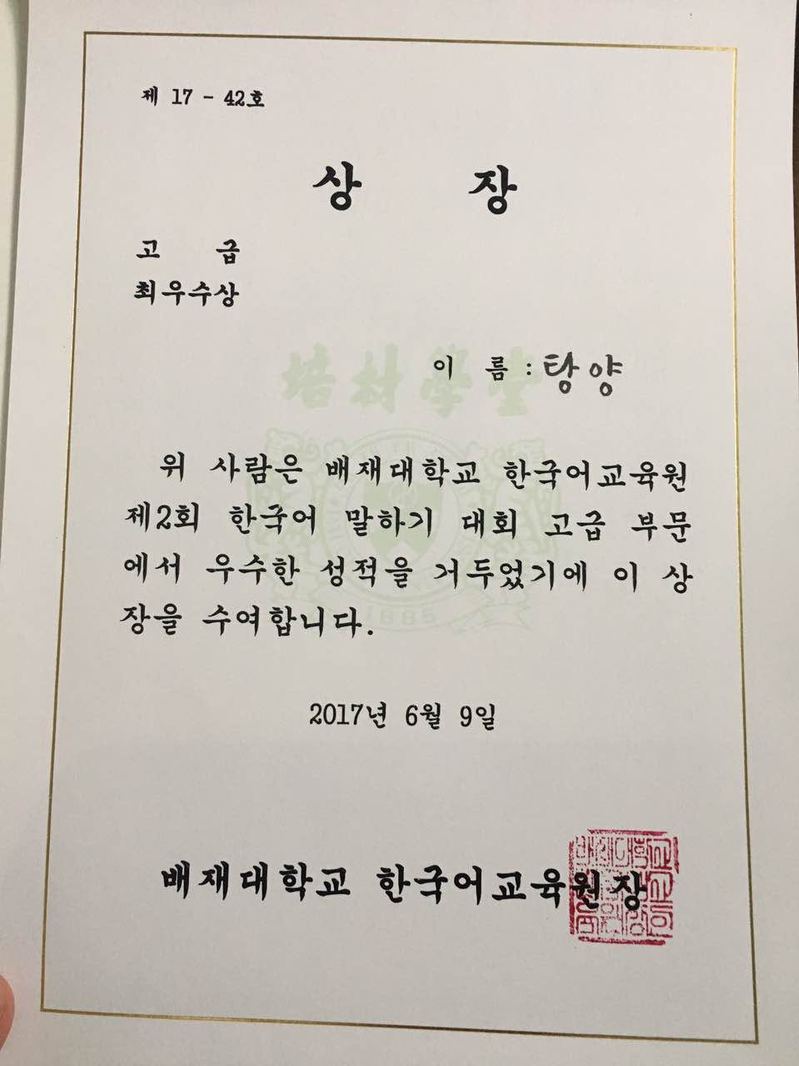 제 17 - 42호
상 장
고 급
최우수상
이 름 : 탕양
培材學堂
위 사람은 배재대학교 한국어교육원
제2회 한국어 말하기 대회 고급 부문
에서 우수한 성적을 거두었기에 이 상
장을 수여합니다.
1885
2017년 6월 9일
배재대학교 한국어교육원장